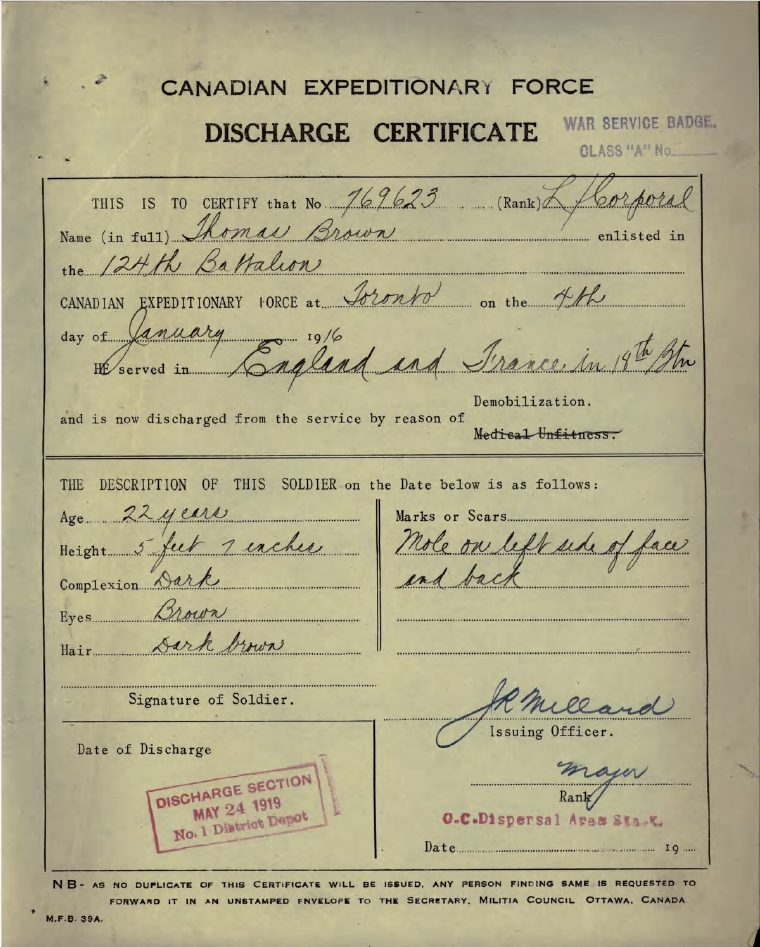 CANADIAN EXPEDITIONARY FORCE
DISCHARGE CERTIFICATE
WAR SERVICE BADGE,
CLASS "A" No
THIS IS TO CERTIFY that No 769623 (Rank) L/Corporal
Name (in full) Thomas Brown enlisted in
the 124th Battalion
CANADIAN EXPEDITIONARY FORCE at Toronto on the 4th
day of January 1916
HE served in England and France in 18th Btn
Demobilization.
and is now discharged from the service by reason of
Medical Unfitness.
THE DESCRIPTION OF THIS SOLDIER on the Date below is as follows:
Age 22 years
Height 5 feet 7 inches
Complexion Dark
Eyes Brown
Hair Dark brown
Marks or Scars
Mole on left side of face
and back
Signature of Soldier.
JR Millard
Issuing Officer.
Major
Rank
O.C. Dispersal Area
Date 19
Date of Discharge
DISCHARGE SECTION
MAY 24 1919
No. 1 District Depot
NB- AS NO DUPLICATE OF THIS CERTIFICATE WILL BE ISSUED, ANY PERSON FINDING SAME IS REQUESTED TO
FORWARD IT IN AN UNSTAMPED ENVELOPE TO THE SECRETARY, MILITIA COUNCIL OTTAWA, CANADA
M.F.B. 39A.